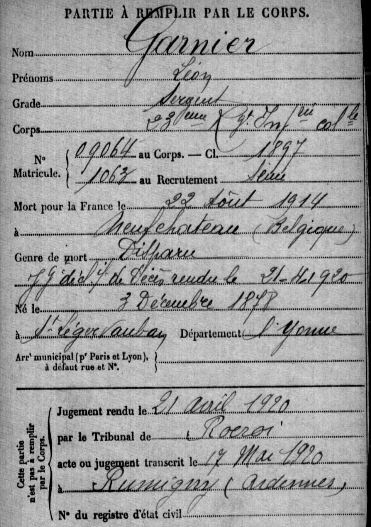 PARTIE À REMPLIR PAR LE CORPS.
Nom Garnier
Prénoms Léon
Grade Sergent
Corps 23eme Rgt Inf rie col le
N° Matricule. 09064 au Corps. — Cl. 1897
1062 au Recrutement Seine
Mort pour la France le 22 Août 1914
à Neufchateau (Belgique)
Genre de mort Disparu
Jgt de de Décès rendu le 21-4-1920
Né le 3 Décembre 1878
à St Léger Vauban Département l'Yonne
Arrt municipal (pr Paris et Lyon), à défaut rue et N°.
Cette partie n'est pas à remplir par le Corps.
Jugement rendu le 21 avril 1920
par le Tribunal de Rocroi
acte ou jugement transcrit le 17 Mai 1920
à Rumigny (Ardennes)
N° du registre d'état civil